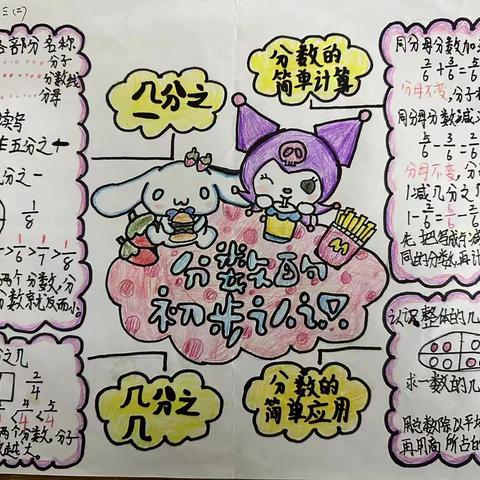 三(2)
各部分名称
分子
分数线
分母
读写
五分之一
分之一
1/8
>1/6>1/7>1/8
两个分数,分
分数就反而小。
之几
2/4
<4/4<5/4
两个分数,分子
越大。
几分之
一
分数的
简单计算
分数的
初步认识
几分之
几
分数的
简单应用
同分母分数加
2/6+3/6=5/6
分母不变,分子
同分母分数减
5/6-3/6=2/6
分母不变,分
1减几分之几
1-2/6=6/6-2/6=
先把1写成与减
同的分数,再计
认识整体的几
求一数的几
用总数除以平均
再用商 所占的